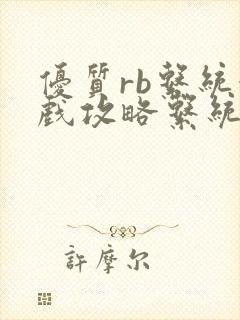 優質rb繫統
戲攻略繫統
許摩尔